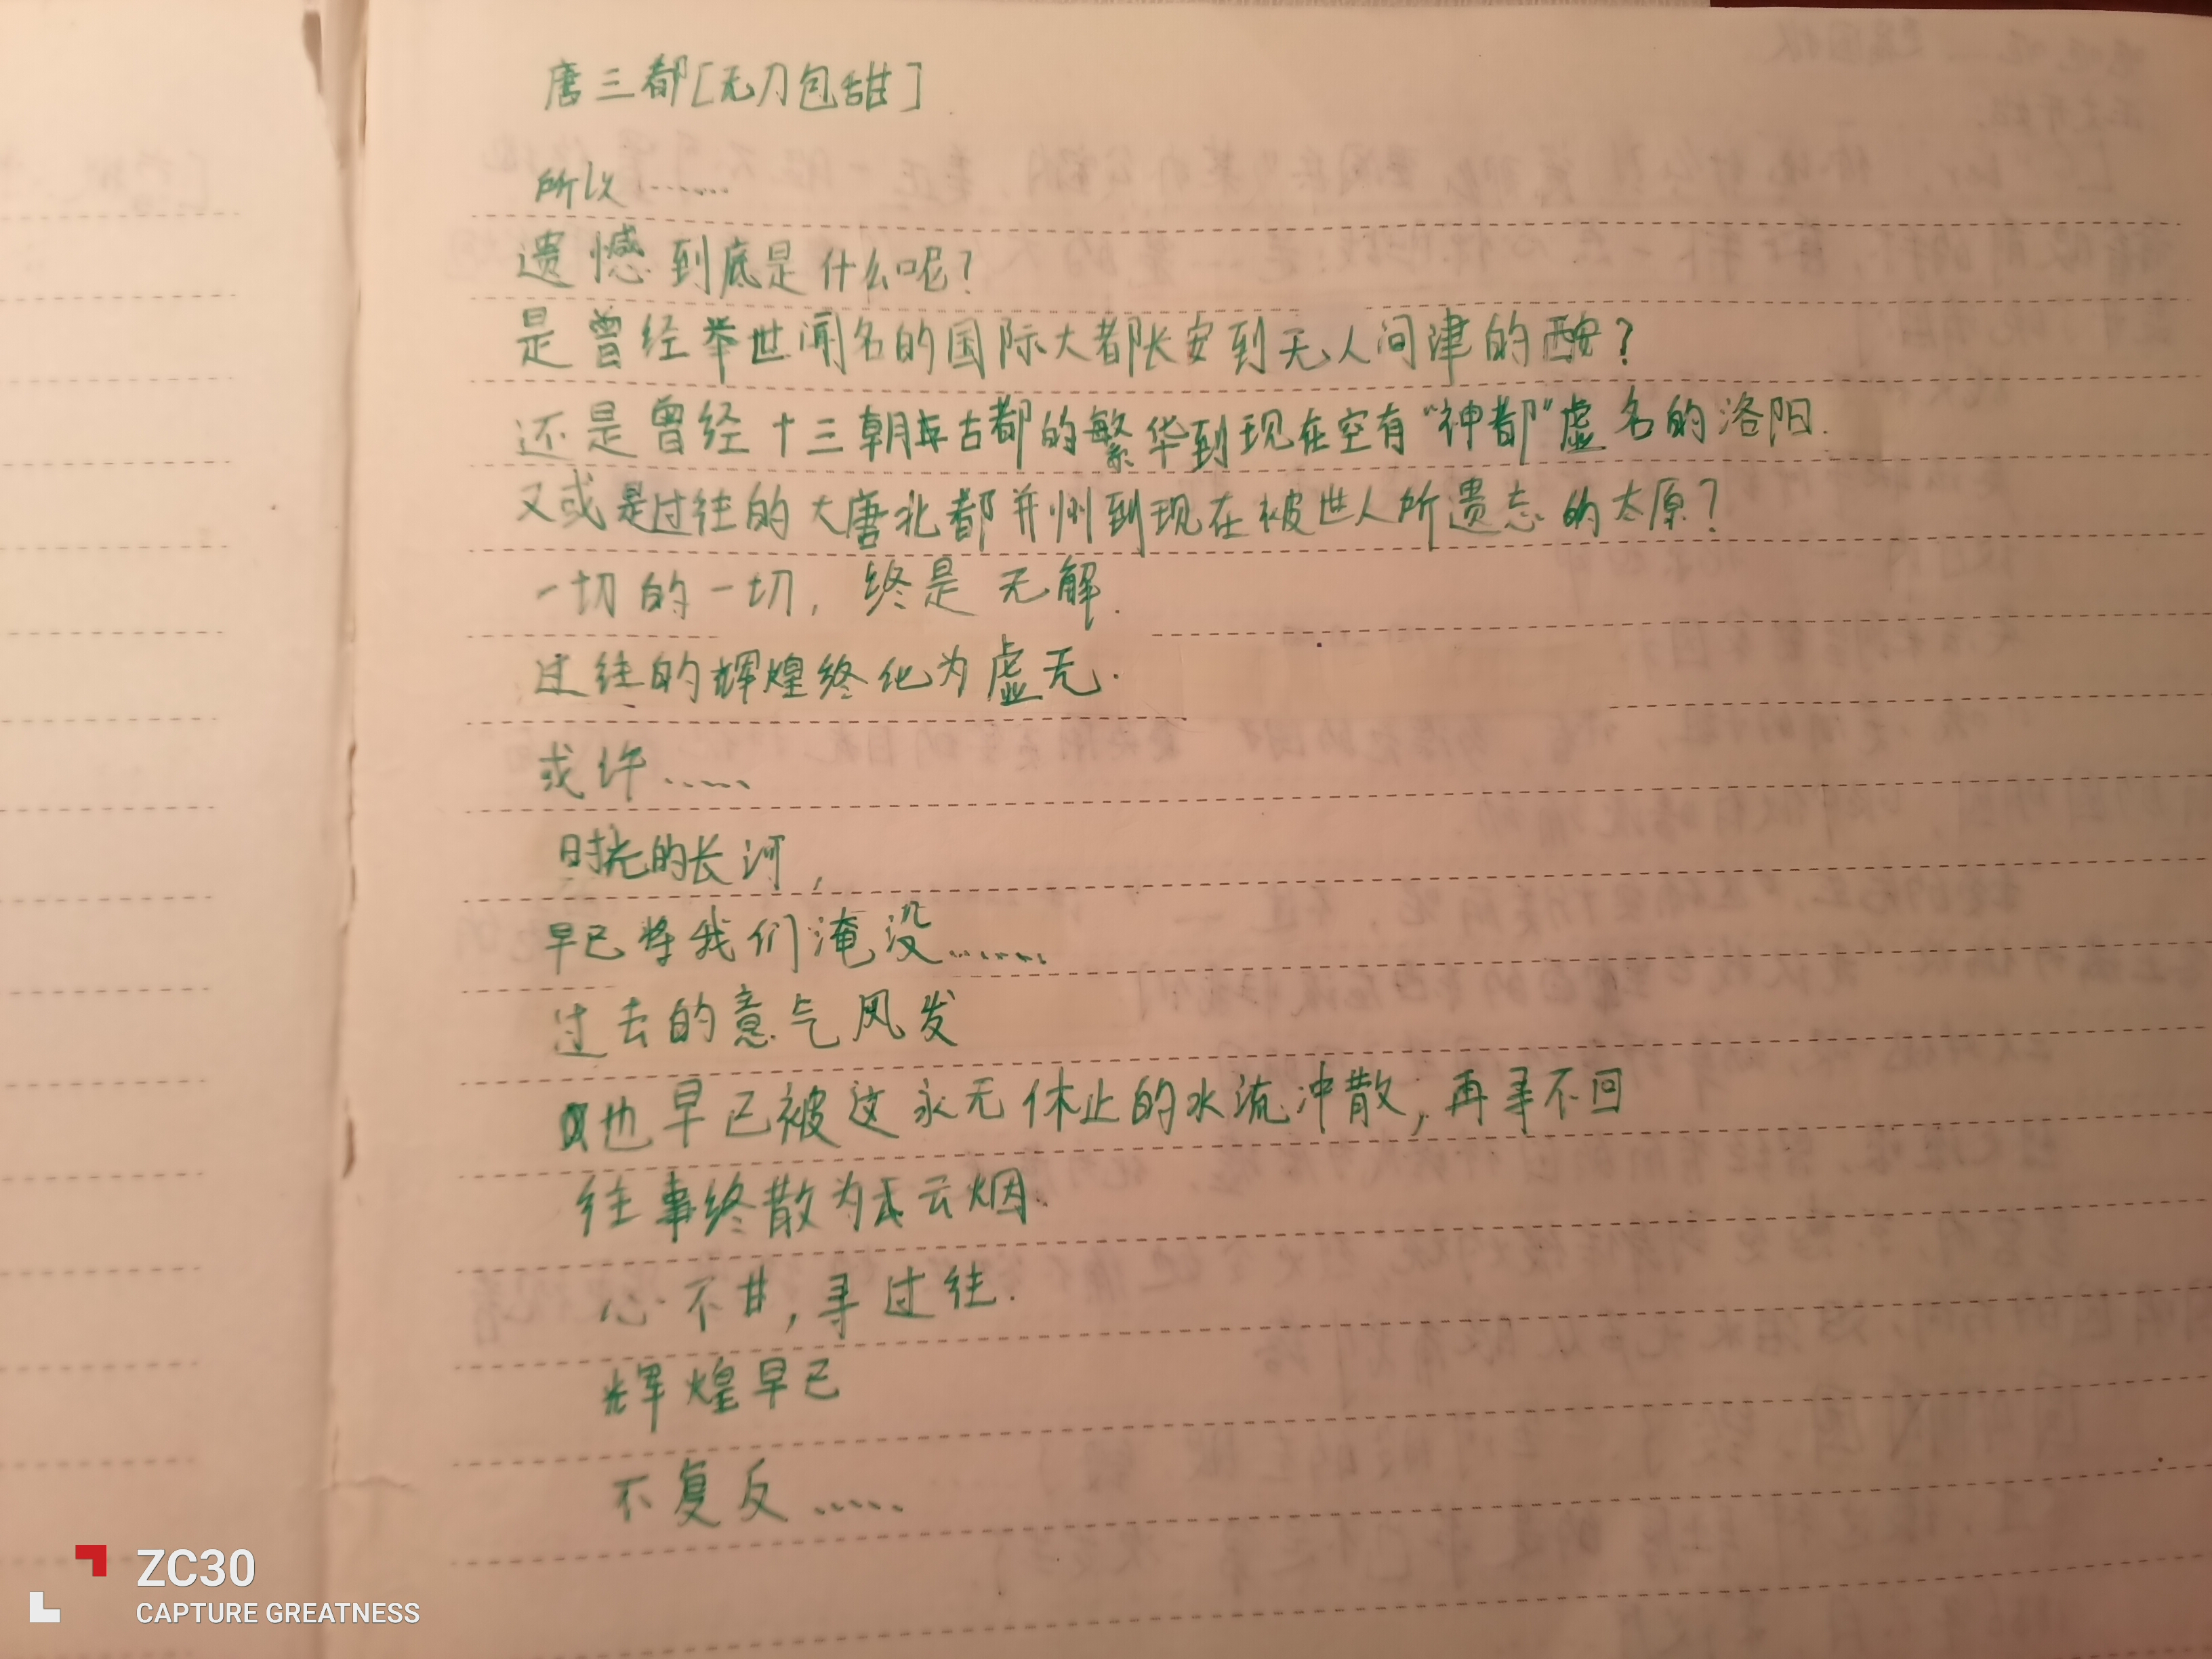 唐三都[无刀包甜]
所以……
遗憾到底是什么呢?
是曾经举世闻名的国际大都长安到无人问津的西安?
还是曾经十三朝古都的繁华到现在空有"神都"虚名的洛阳.
又或是过往的大唐北都并州到现在被世人所遗忘的太原?
一切的一切, 终是无解.
过往的辉煌终化为虚无.
或许……
时光的长河,
早已将我们淹没……
过去的意气风发
也早已被这永无休止的水流冲散, 再寻不回
往事终散为云烟.
心不甘, 寻过往.
辉煌早已
不复反……
ZC30
CAPTURE GREATNESS